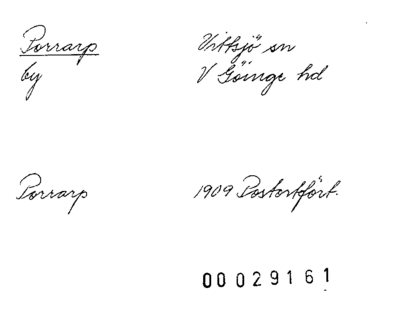 Porrarp Vittsjö sn
by V Göinge hd
Porrarp 1909 Postortför t.
00029161